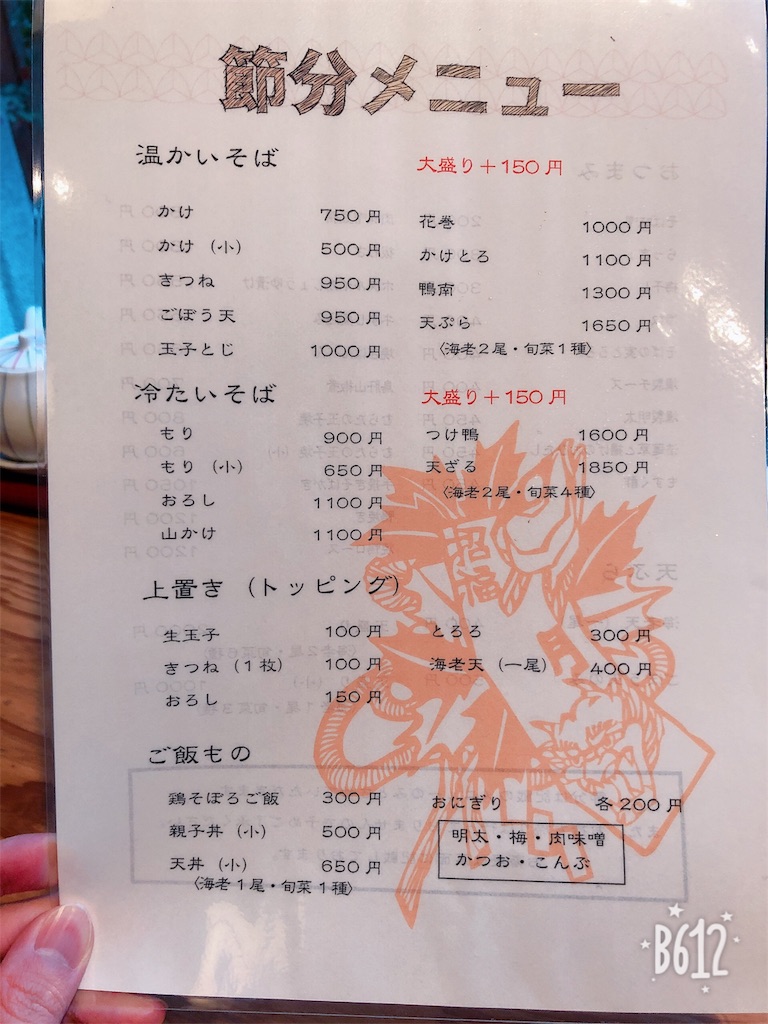 節分メニュー
温かいそば 大盛り＋150円
かけ 750円
かけ（小） 500円
きつね 950円
ごぼう天 950円
玉子とじ 1000円
花巻 1000円
かけとろ 1100円
鴨南 1300円
天ぷら 1650円
〈海老2尾・旬菜1種〉
冷たいそば 大盛り＋150円
もり 900円
もり（小） 650円
おろし 1100円
山かけ 1100円
つけ鴨 1600円
天ざる 1850円
〈海老2尾・旬菜4種〉
上置き（トッピング）
生玉子 100円
きつね（1枚） 100円
おろし 150円
とろろ 300円
海老天（一尾） 400円
ご飯もの
鶏そぼろご飯 300円
親子丼（小） 500円
天丼（小） 650円
〈海老1尾・旬菜1種〉
おにぎり 各200円
明太・梅・肉味噌
かつお・こんぶ
B612